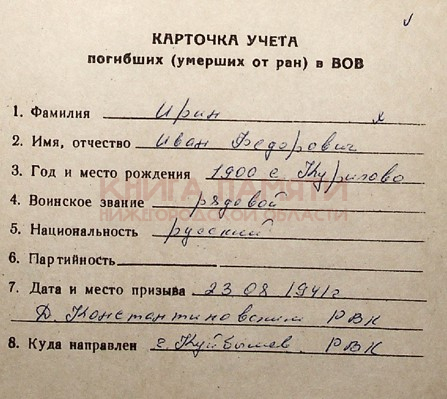 КАРТОЧКА УЧЕТА
погибших (умерших от ран) в ВОВ
1. Фамилия Ирин
2. Имя, отчество Иван Федорович
3. Год и место рождения 1900 с. Курилово
КНИГА ПАМЯТИ
4. Воинское звание рядовой
НИЖЕГОРОДСКОЙ ОБЛАСТИ
5. Национальность русский
6. Партийность
7. Дата и место призыва 23 08 1941г
Д. Константиновским РВК
8. Куда направлен г. Куйбышев РВК